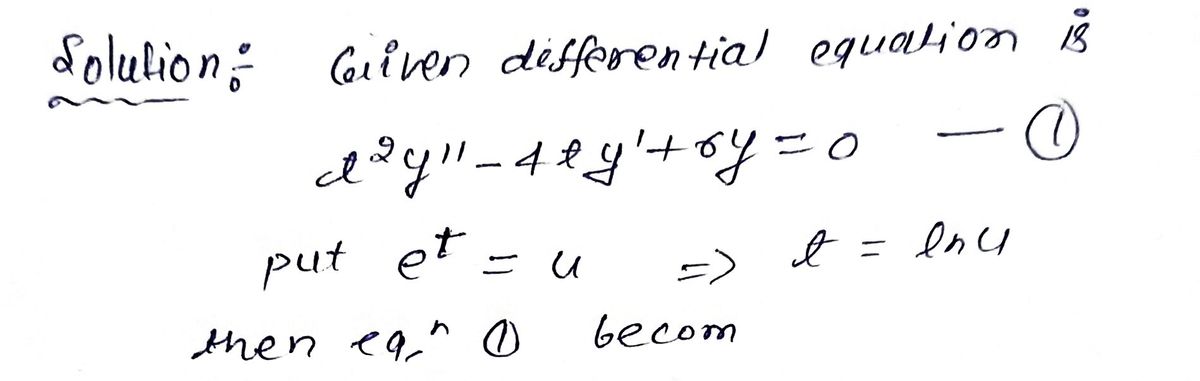 Solution: Given differential equation is
t²y'' - 4ty' + 6y = 0 — ①
put eᵗ = u => t = ln u
then eqⁿ ① becom